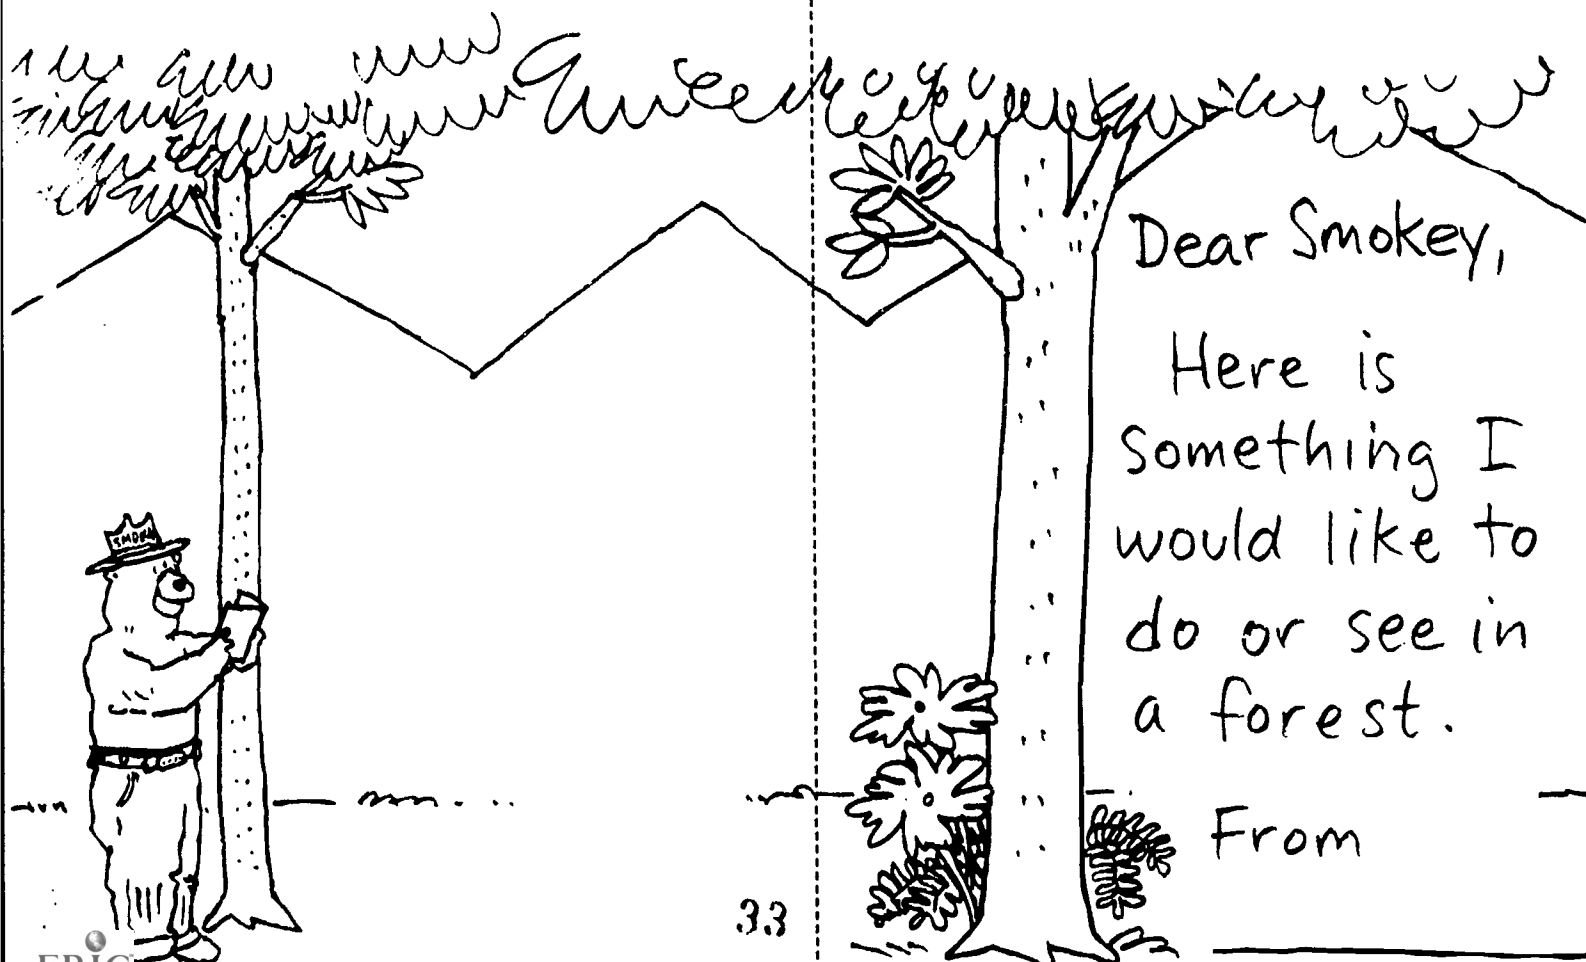 SMOKEY
Dear Smokey,
Here is
something I
would like to
do or see in
a forest.
From
33
ERIC